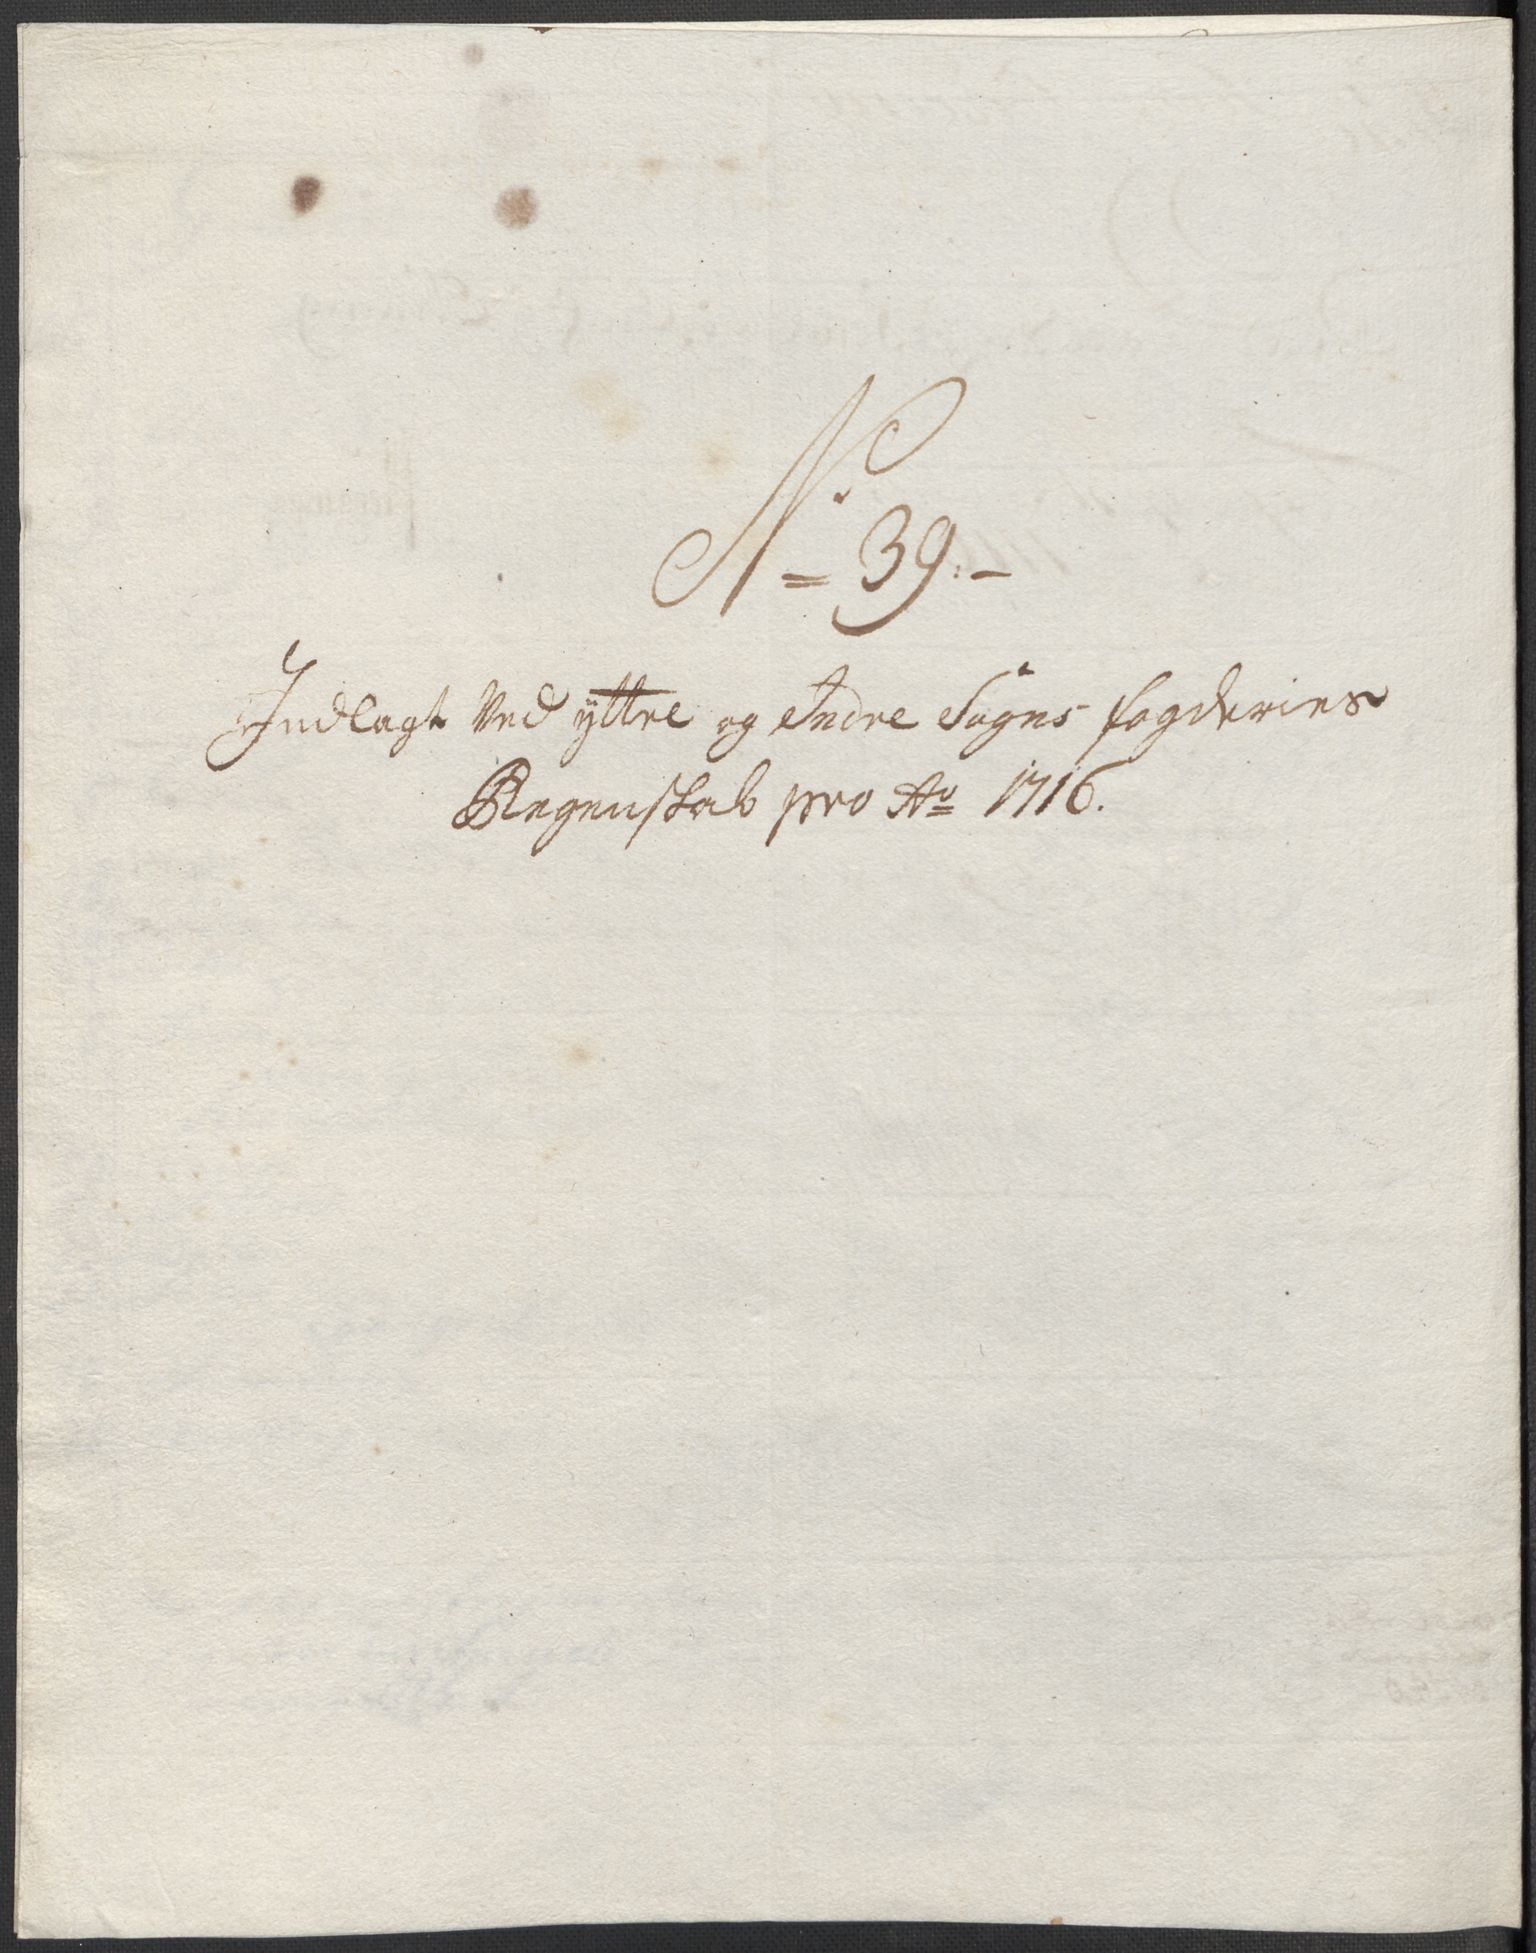 N: = 39.-
Indlagt Ved ÿttre og Indre Sogns fogderies
Regenskab pro Ao 1716.